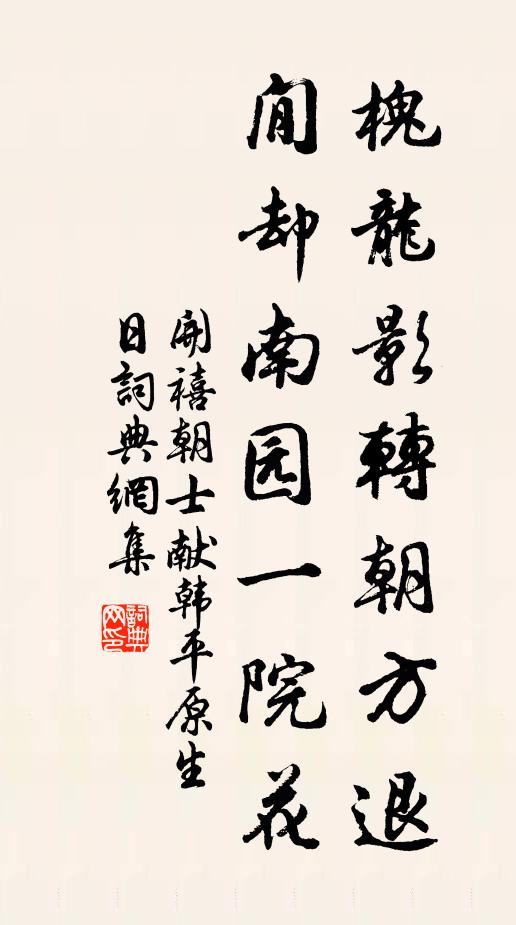 槐龍影轉朝方退
閒却南园一院花
開禧朝士献韩平原生
日詞典網集
詞典网印